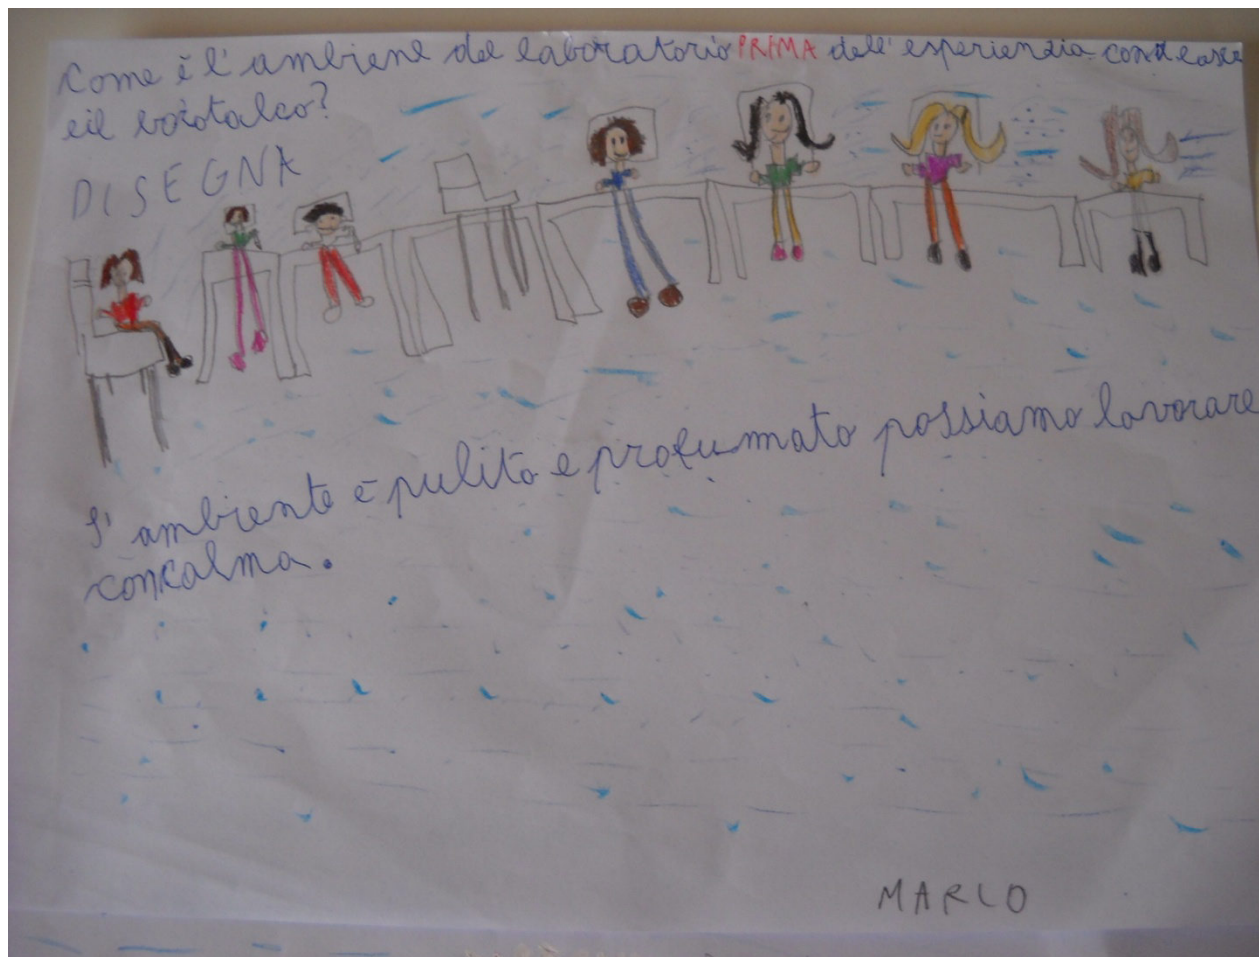 Come è l'ambiene del laboratorio PRIMA dell'esperienzia con
e il borotalco?
DISEGNA
L'ambiente è pulito e profumato possiamo lavorare
con calma.
MARCO